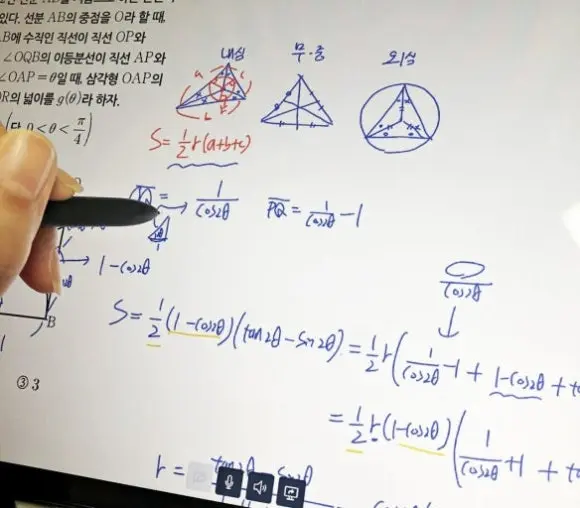 있다. 선분 AB의 중점을 O라 할 때,
AB에 수직인 직선이 직선 OP와
∠OQB의 이등분선이 직선 AP와
∠OAP = θ일 때, 삼각형 OAP의
OR의 넓이를 g(θ)라 하자.
(단, 0 < θ < π/4)
내심
무·중
외심
a
c
b
r
S = 1/2 r(a+b+c)
= 1/cos2θ
PQ = 1/cos2θ - 1
1
1-cos2θ
B
cos2θ
S = 1/2 (1-cos2θ)(tan2θ - sin2θ) = 1/2 r(1/cos2θ - 1 + 1-cos2θ + ta
= 1/2 r(1-cos2θ)(1/cos2θ + 1 + t
③ 3
r = tan2θ sin2θ